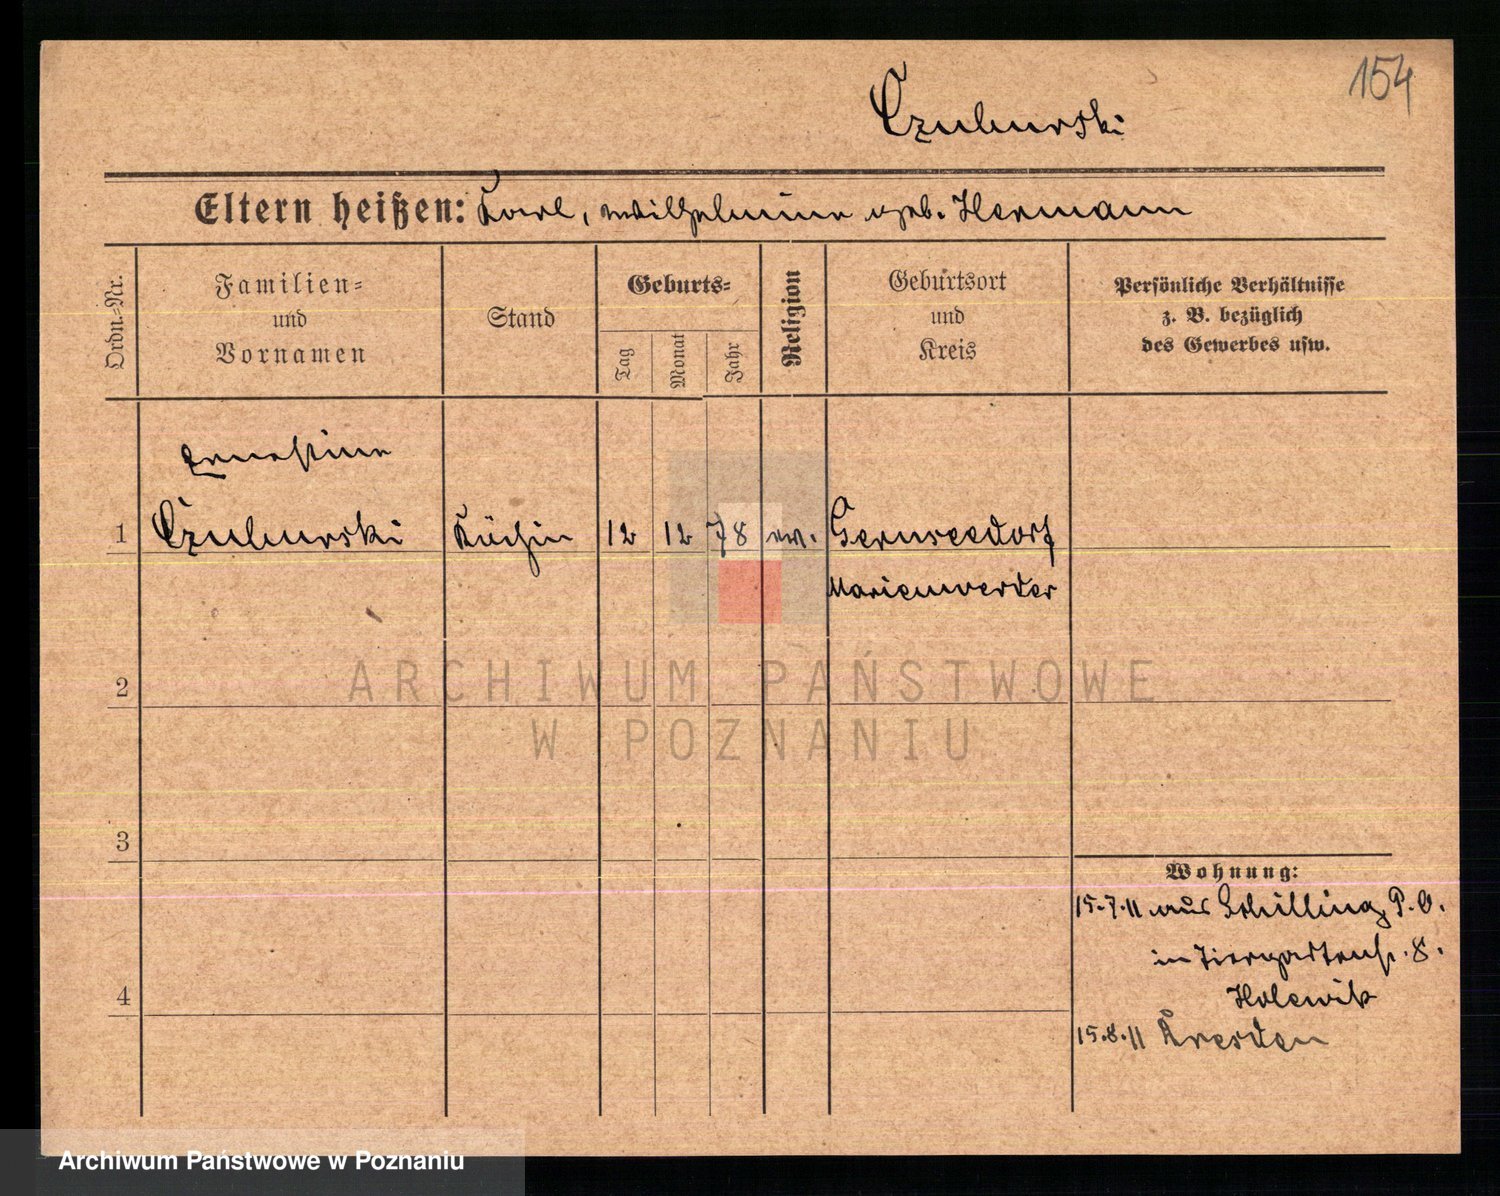 154
Czuburski
Eltern heißen: Karl, Wilhelmine geb. Hermann
Ordn.-Nr.
Familien-
und
Vornamen
Stand
Geburts-
Tag
Monat
Jahr
Religion
Geburtsort
und
Kreis
Persönliche Verhältnisse
z. B. bezüglich
des Gewerbes usw.
Ernestine
1 Czuburski Köchin 12 12 78 ev.
Marienwerder
2
3
4
Wohnung:
15.7.11 aus Schilling P. O.
in Tiergartenstr. 8.
15.8.11 Dresden
ARCHIWUM PAŃSTWOWE
W POZNANIU
Archiwum Państwowe w Poznaniu